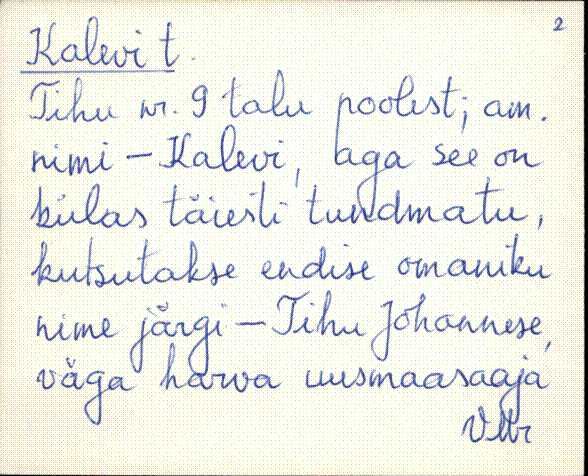 2
Kalevi t.
Tihu nr. 9 talu poolest; am.
nimi – Kalevi, aga see on
külas täiesti tundmatu,
kutsutakse endise omaniku
nime järgi – Tihu Johannese,
väga harva uusmaasaaja